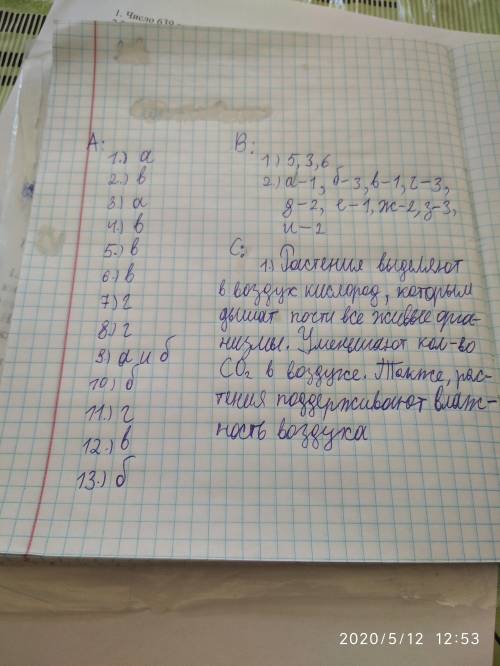 1. Число 639
А:
1.) а
2.) в
3) а
4.) в
5.) в
6.) в
7) г
8.) г
9) а и б
10) б
11.) г
12.) в
13.) б
В:
1) 5, 3, 6
2) а-1, б-3, в-1, г-3,
д-2, е-1, ж-2, з-3,
и-2
С:
1.) Растения выделяют
в воздух кислород, которым
дышат почти все живые орга-
низмы. Уменьшают кол-во
CO₂ в воздухе. Также, рас-
тения поддерживают влаж-
ность воздуха
2020/5/12 12:53